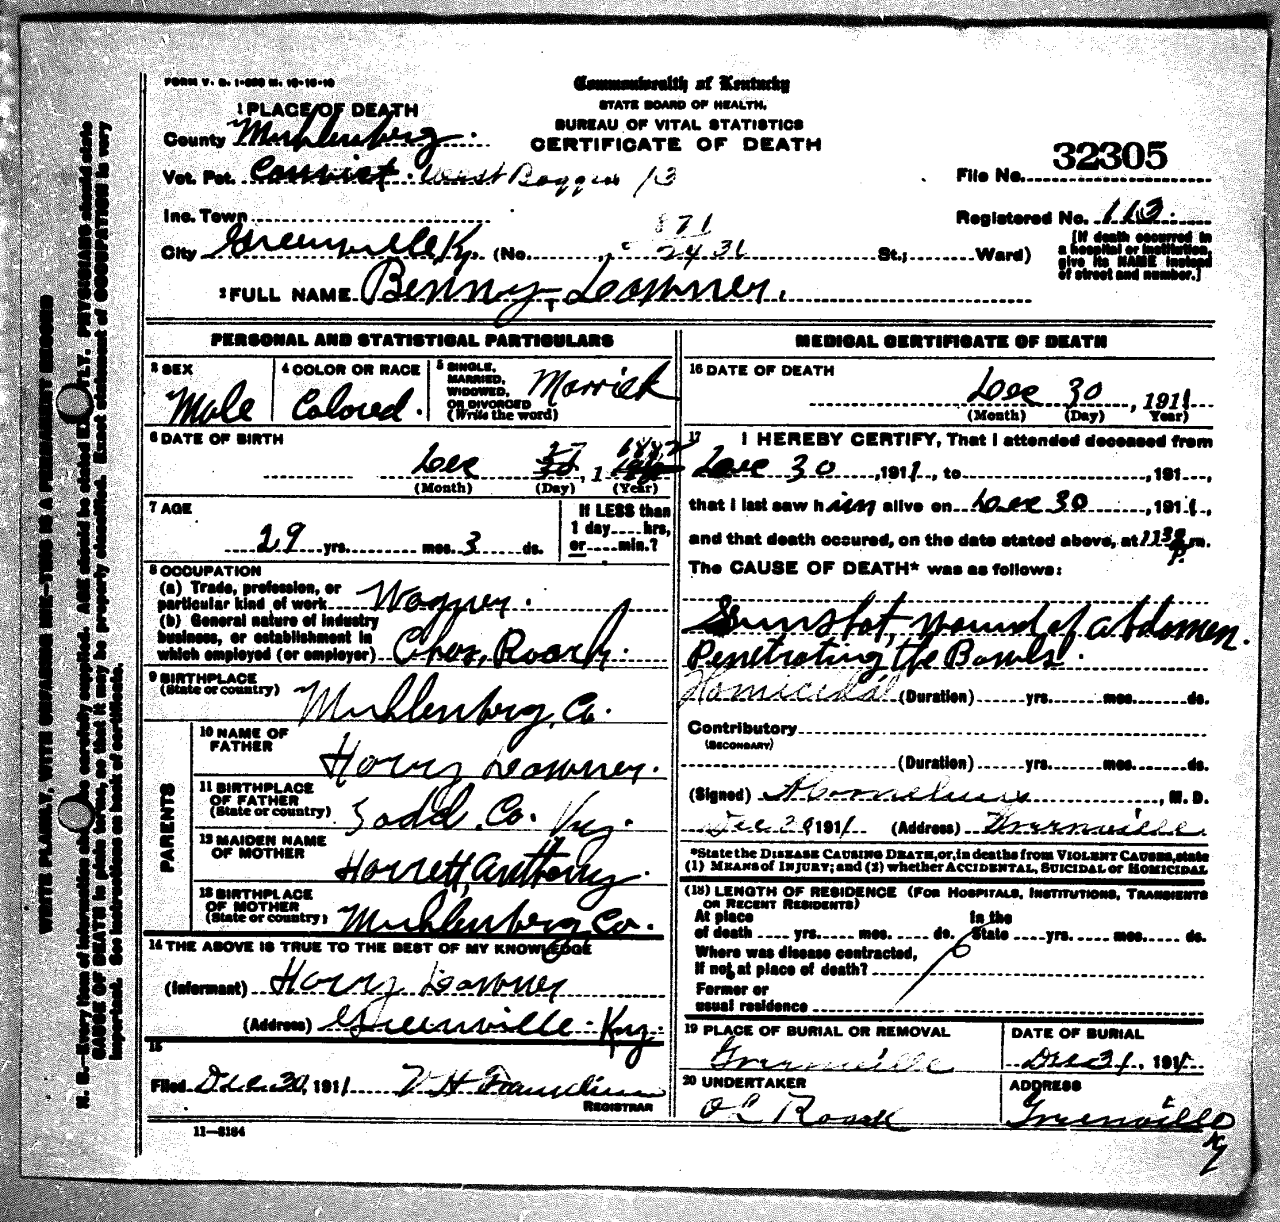 FORM V. S. 1-
Commonwealth of Kentucky
STATE BOARD OF HEALTH,
BUREAU OF VITAL STATISTICS
CERTIFICATE OF DEATH
1 PLACE OF DEATH
County Muhlenberg.
Vot. Pct. West 13
File No. 32305
Inc. Town
871
Registered No. 113.
City Greenville Ky. (No. 2431 St.; Ward)
[If death occurred in a hospital or institution, give its NAME instead of street and number.]
2 FULL NAME Benny,
PERSONAL AND STATISTICAL PARTICULARS
3 SEX Male
4 COLOR OR RACE Colored.
5 SINGLE, MARRIED, WIDOWED, OR DIVORCED (Write the word)
6 DATE OF BIRTH
Dec 27, 1882
(Month) (Day) (Year)
7 AGE
29 yrs. mos. 3 ds.
If LESS than 1 day hrs, or min.?
8 OCCUPATION
(a) Trade, profession, or particular kind of work Wagner.
(b) General nature of industry business, or establishment in which employed (or employer) Chas, Roark.
9 BIRTHPLACE
(State or country) Muhlenberg, Co.
PARENTS
10 NAME OF FATHER Harry
11 BIRTHPLACE OF FATHER
(State or country) Todd. Co. Ky.
12 MAIDEN NAME OF MOTHER Harrett, Anthony.
13 BIRTHPLACE OF MOTHER
(State or country) Muhlenberg, Co.
14 THE ABOVE IS TRUE TO THE BEST OF MY KNOWLEDGE
(Informant) Harry
(Address) Greenville. Ky.
15
Filed Dec 30, 1911
REGISTRAR
11-3184
MEDICAL CERTIFICATE OF DEATH
16 DATE OF DEATH
Dec 30, 1911
(Month) (Day) Year)
17 I HEREBY CERTIFY, That I attended deceased from
Dec 30, 1911, to , 191 ,
that I last saw him alive on Dec 30, 1911,
and that death occured, on the date stated above, at 1130 P. m.
The CAUSE OF DEATH* was as follows:
Gunshot, wound of abdomen.
Penetrating, the Bowels.
Homicidal (Duration) yrs. mos. ds.
Contributory
(SECONDARY)
(Duration) yrs. mos. ds.
(Signed) , M. D.
Dec 1911 (Address) Greenville
*State the DISEASE CAUSING DEATH, or, in deaths from VIOLENT CAUSES, state
(1) MEANS of INJURY; and (2) whether ACCIDENTAL, SUICIDAL or HOMICIDAL
(18) LENGTH OF RESIDENCE (FOR HOSPITALS, INSTITUTIONS, TRANSIENTS OR RECENT RESIDENTS)
At place of death yrs. mos. ds. In the State yrs. mos. ds.
Where was disease contracted,
If not, at place of death?
Former or
usual residence
19 PLACE OF BURIAL OR REMOVAL Greenville
DATE OF BURIAL Dec 31, 1911
20 UNDERTAKER O L Roark
ADDRESS Greenville Ky
WRITE PLAINLY, WITH UNFADING INK—THIS IS A PERMANENT RECORD
N. B.—Every item of information should be carefully supplied. AGE should be stated EXACTLY. PHYSICIANS should state
CAUSE OF DEATH in plain terms, so that it may be properly classified. Exact statement of OCCUPATION is very
important. See instructions on back of certificate.